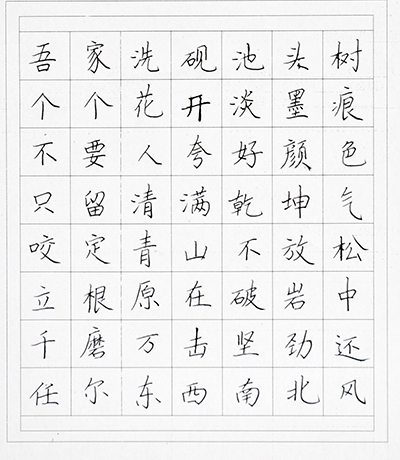 吾家洗砚池头树
个个花开淡墨痕
不要人夸好颜色
只留清满乾坤气
咬定青山不放松
立根原在破岩中
千磨万击坚劲还
任尔东西南北风